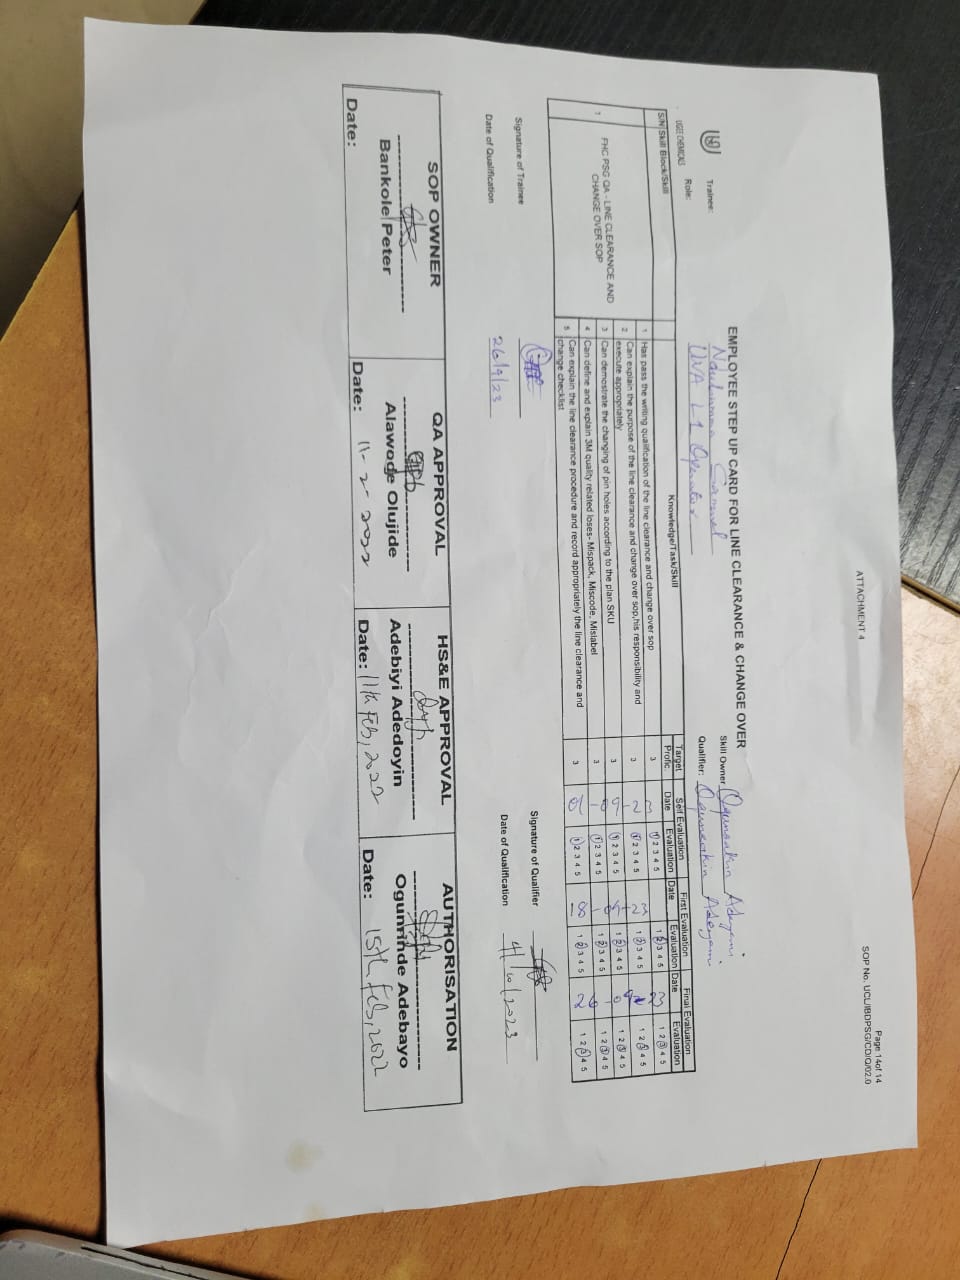 Page 14of 14
ATTACHMENT 4
SOP No. UCL/IBDPSG/CD/Q/02.0
EMPLOYEE STEP UP CARD FOR LINE CLEARANCE & CHANGE OVER
Trainee: Samuel
Skill Owner Ogunsakin Adeyemi
LIGEE CHEMICALS
Role: UVA L1 Operator
Qualifier: Ogunsakin Adeyemi
S/N Skill Block/Skill Knowledge/Task/Skill Target Profic. Self Evaluation First Evaluation Final Evaluation
Date Evaluation Date Evaluation Date Evaluation
1 FHC PSG QA - LINE CLEARANCE AND CHANGE OVER SOP
1 Has pass the writing qualification of the line clearance and change over sop 3 1 2 3 4 5 1 2 3 4 5 1 2 3 4 5
2 Can explain the purpose of the line clearance and change over sop,his responsibility and
execute appropriately 3 1 2 3 4 5 1 2 3 4 5 1 2 3 4 5
3 Can demostrate the changing of pin holes according to the plan SKU 3 1 2 3 4 5 1 2 3 4 5 1 2 3 4 5
4 Can define and explain 3M quality related loses- Mispack, Miscode, Mislabel 3 1 2 3 4 5 1 2 3 4 5 1 2 3 4 5
5 Can explain the line clearance procedure and record appropriately the line clearance and
change checklist 3 1 2 3 4 5 1 2 3 4 5 1 2 3 4 5
Signature of Trainee
Signature of Qualifier
Date of Qualification 26/9/23
Date of Qualification 4/10/2023
SOP OWNER QA APPROVAL HS&E APPROVAL AUTHORISATION
Bankole Peter Alawode Olujide Adebiyi Adedoyin Ogunrinde Adebayo
Date: Date: 11-2-2022 Date: 11th Feb, 2022 Date: 15th Feb, 2022